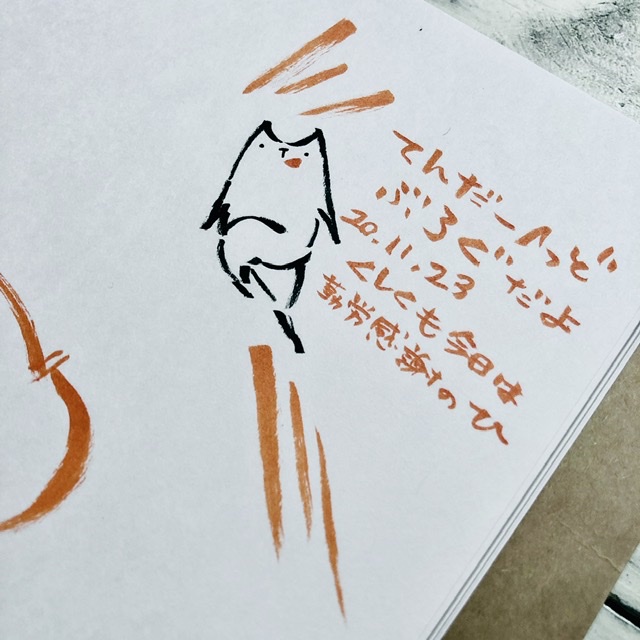 てんだーへっど
ぶろぐだよ
20.11.23
くしくも今日は
勤労感謝のひ